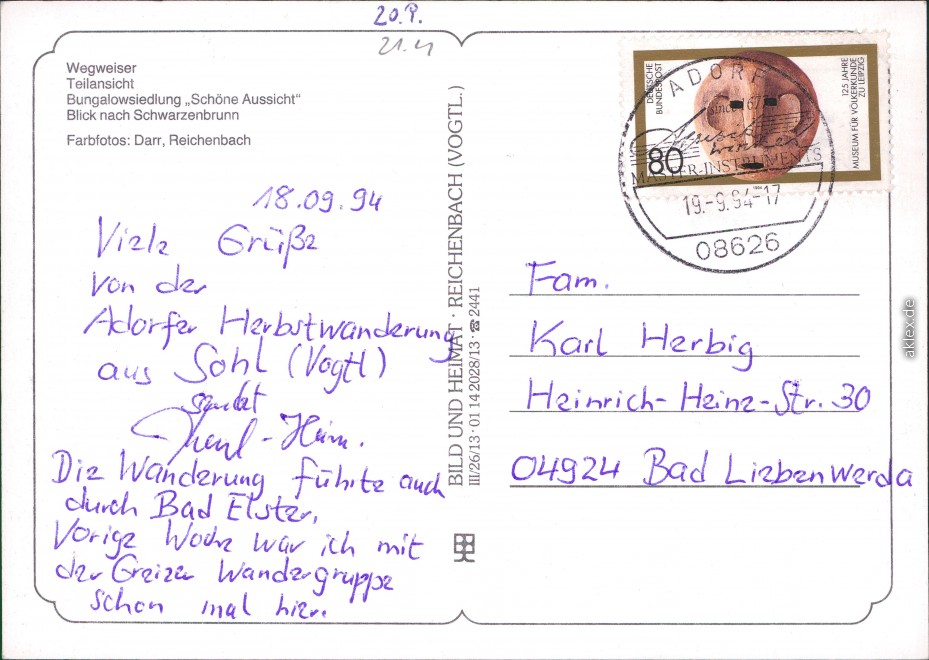 20.9.
21.4
Wegweiser
Teilansicht
Bungalowsiedlung „Schöne Aussicht“
Blick nach Schwarzenbrunn
Farbfotos: Darr, Reichenbach
18.09.94
Viele Grüße
von der
Adorfer Herbstwanderung
aus Sohl (Vogtl)
sendet
Die Wanderung führte auch
durch Bad Elster.
Vorige Woche war ich mit
der Greizer Wandergruppe
schon mal hier.
BILD UND HEIMAT · REICHENBACH (VOGTL.)
III/26/13 · 01 14 2028/13 · ☎ 2441
DEUTSCHE
BUNDESPOST
80
125 JAHRE
MUSEUM FÜR VÖLKERKUNDE
ZU LEIPZIG
ADORF
since 1677
Musik
MASTER-INSTRUMENTS
19.-9.94-17
08626
Fam.
Karl Herbig
Heinrich-Heine-Str. 30
04924 Bad Liebenwerda
aklex.de